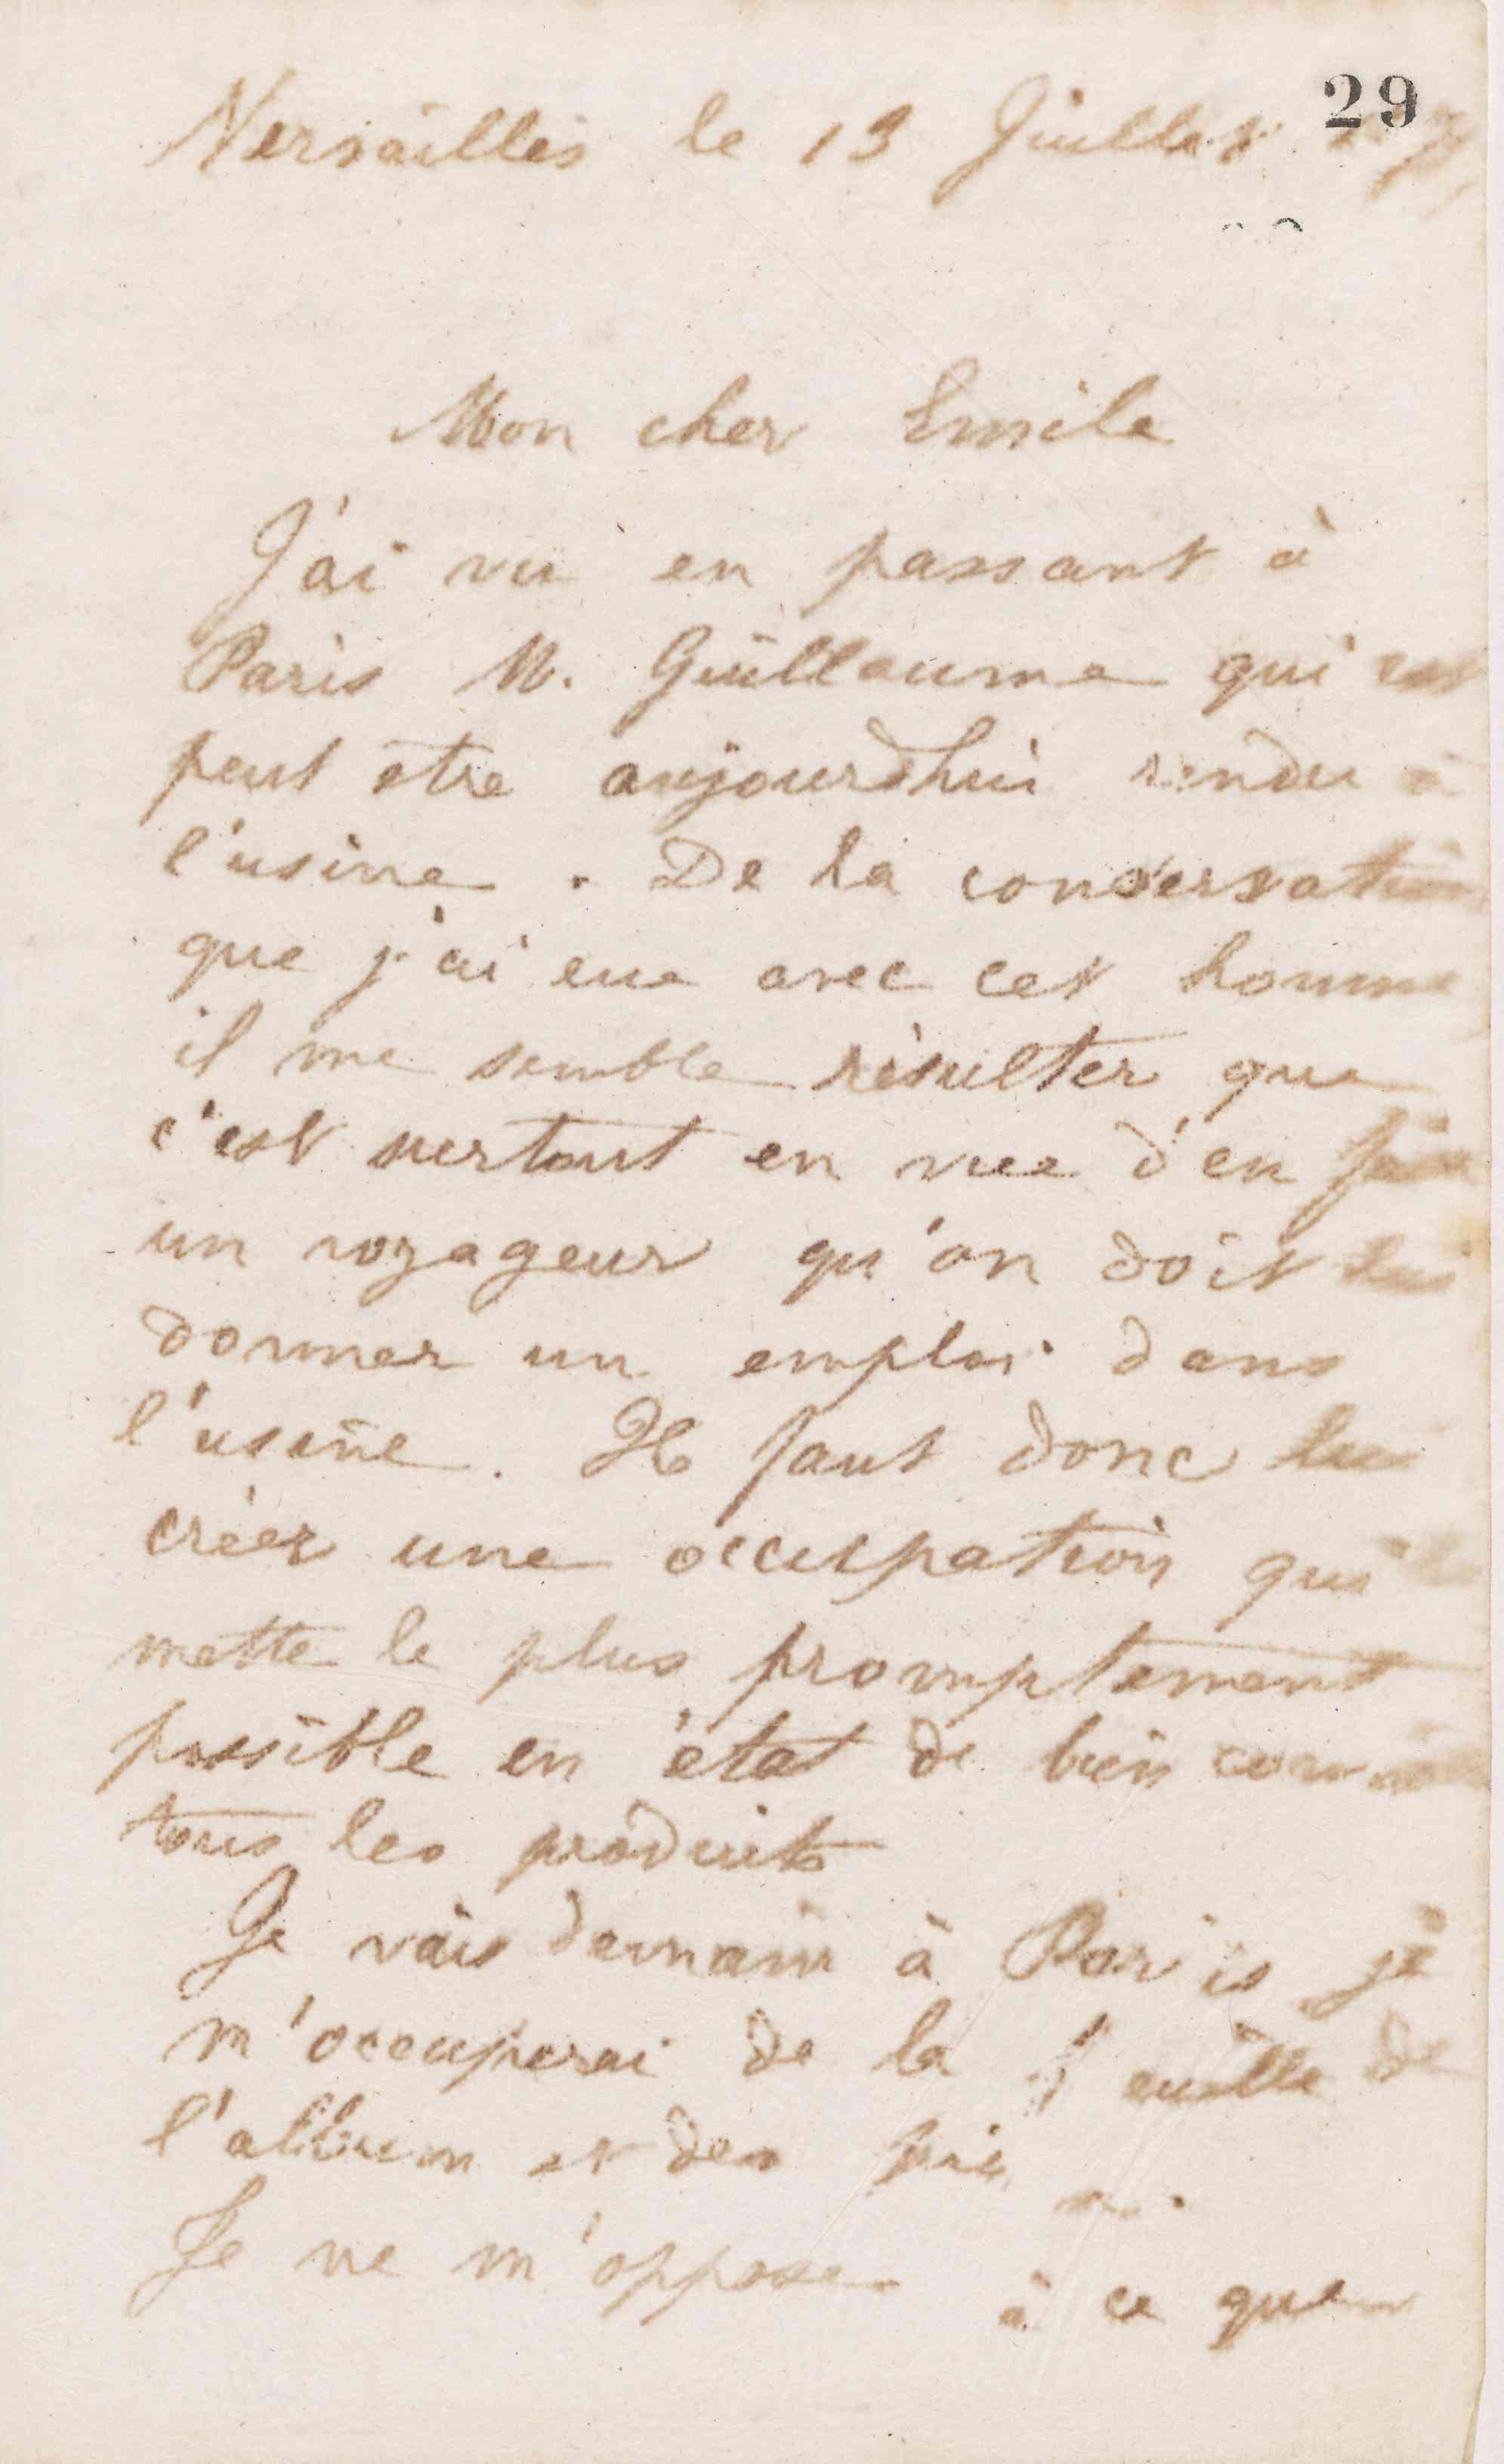 29
Versailles le 13 Juillet
Mon cher Emile
J'ai vu en passant à
Paris M. Guillaume qui est
peut etre aujourdhui rendu à
l'usine. De la conversation
que j'ai eue avec cet homme
il me semble résulter que
c'est surtout en vue d'en faire
un voyageur qu'on doit lui
donner un emploi dans
l'usine. Il faut donc lui
créer une occupation qui
mette le plus promptement
possible en état de bien connaitre
tous les produits
Je vais demain à Paris je
m'occuperai de la feuille de
l'album et des
Je ne m'oppose à ce que